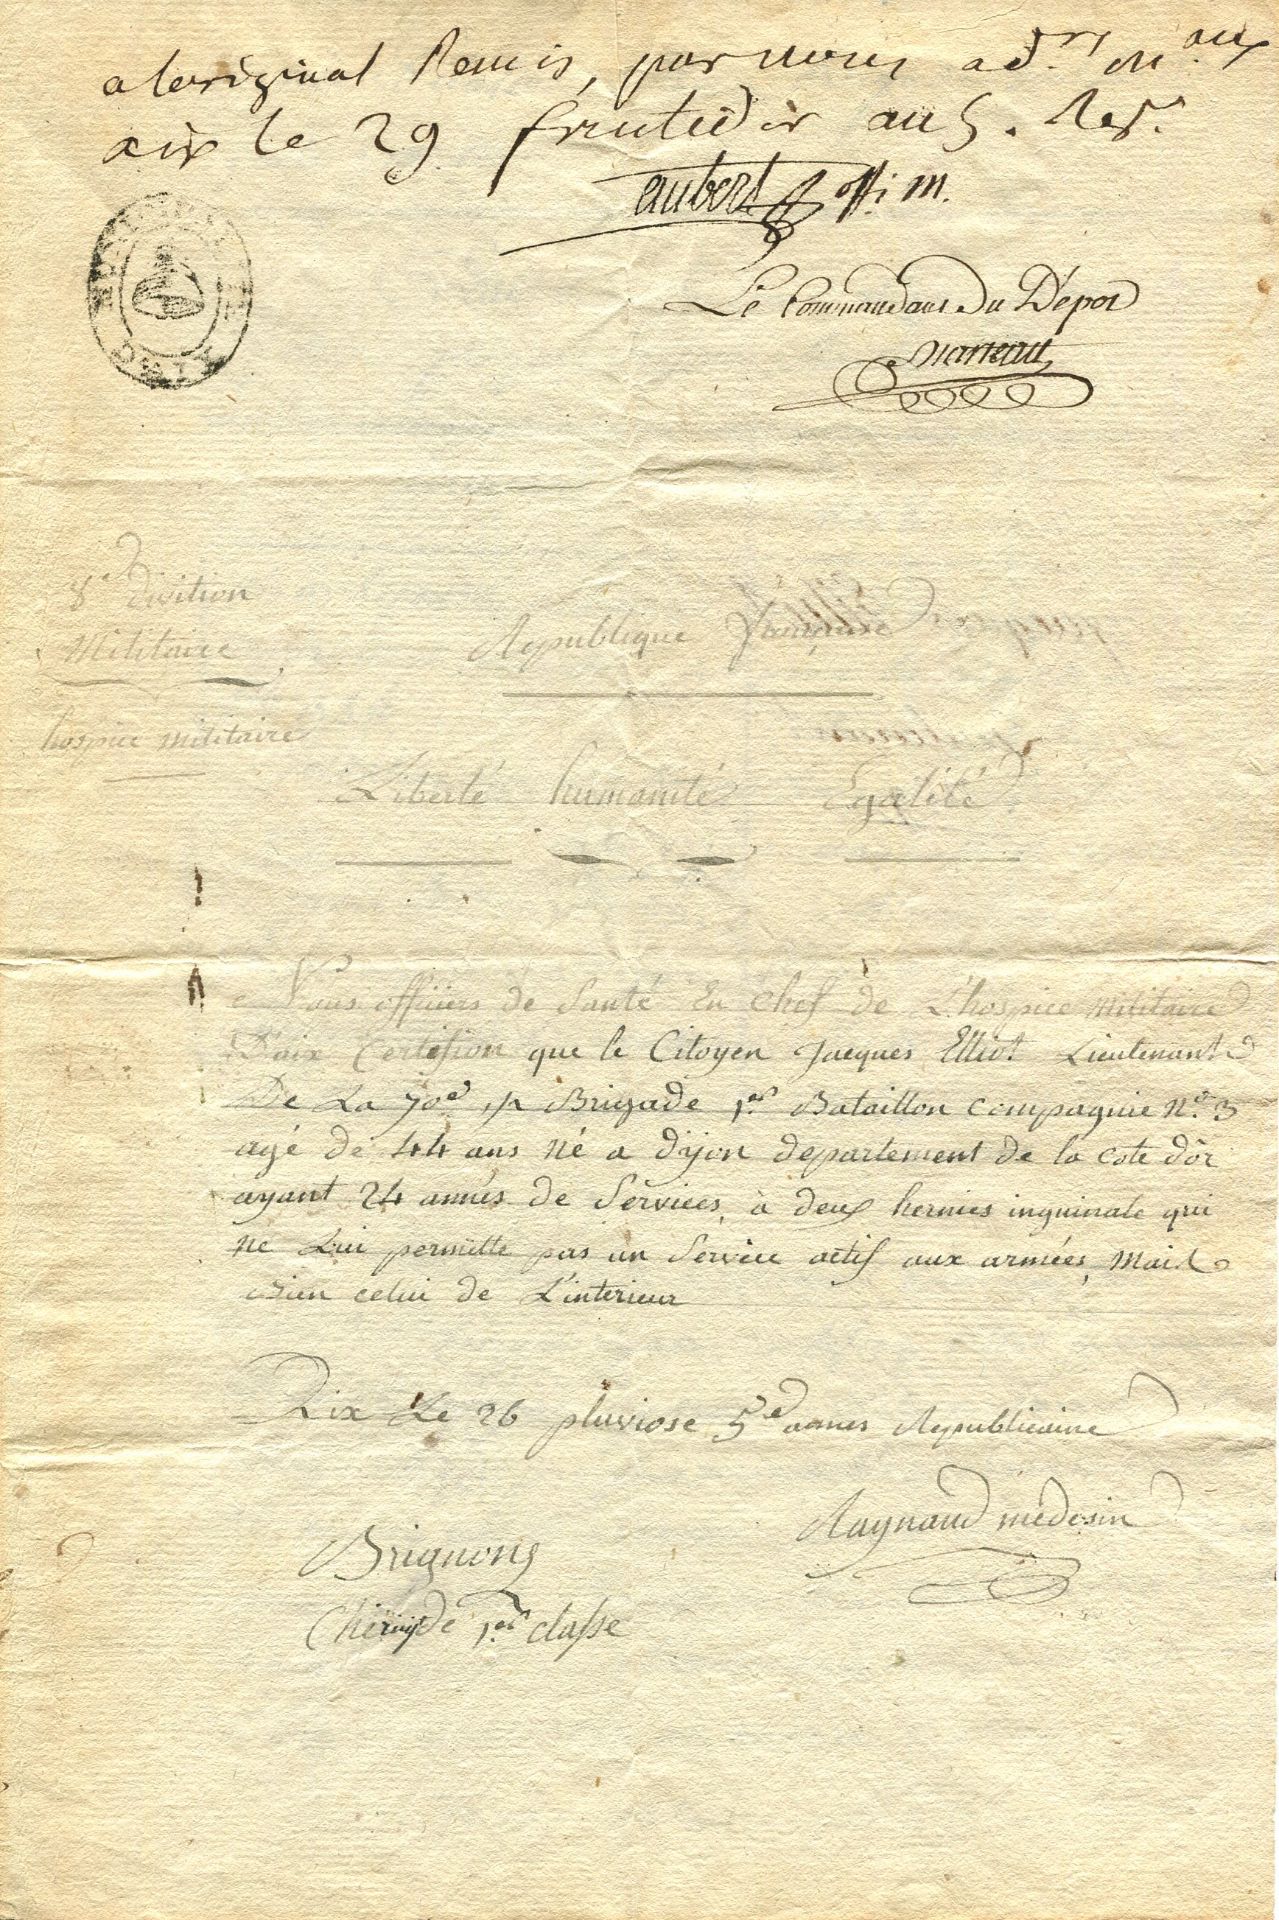 a loriginal Remis, par nous ad.rs m.aux
aix le 29 fructidor an 5. Rep.
aubert offi m.
Le Commandant Du Dépot
8e division
Militaire
République française
hospice militaire
Liberté humanité Egalité
Nous officiers de Santé En chef de L'hospice Militaire
Daix Certifion que le Citoyen Jacques Elliot Lieutenant
De La 70e 1/2 Brigade 1er Bataillon compagnie No. 3
agé de 44 ans né a dijon departement de la cote dòr
ayant 24 annés de Services, a deux hernies inguinale qui
ne Lui permette pas un Service actif aux armées, Mais
Bien celui de L'interieur
Aix Le 26 pluviose 5e annés Républicaine
Raynaud médesin
Brignong
Chirug de 1er classe